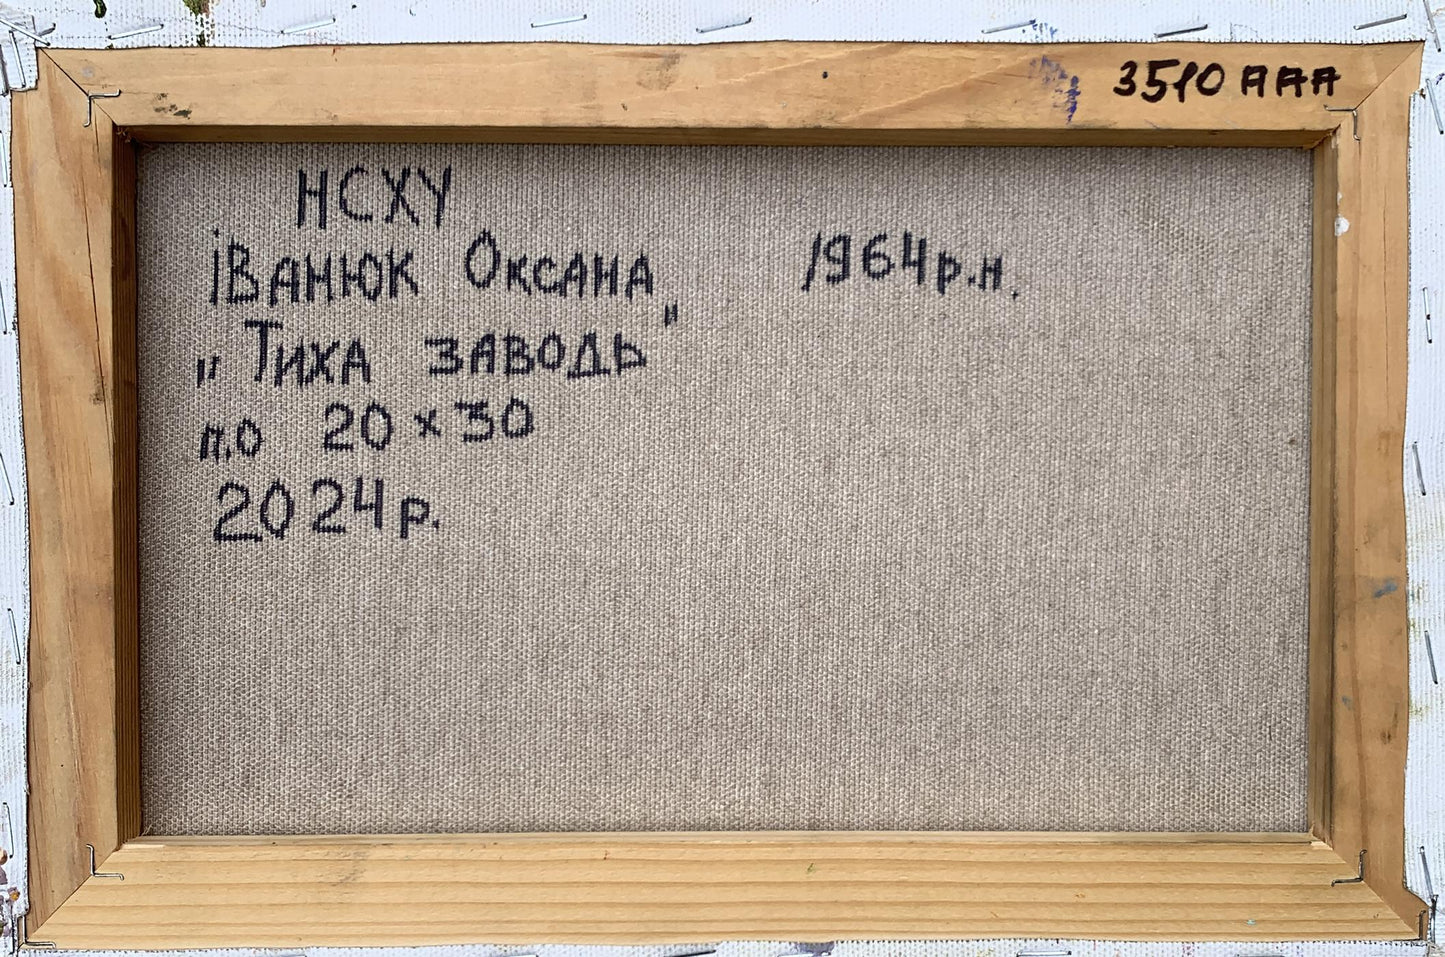 3510 AAA
НСХУ
іванюк Оксана 1964р.н.
„Тиха заводь"
п.о 20х30
2024р.